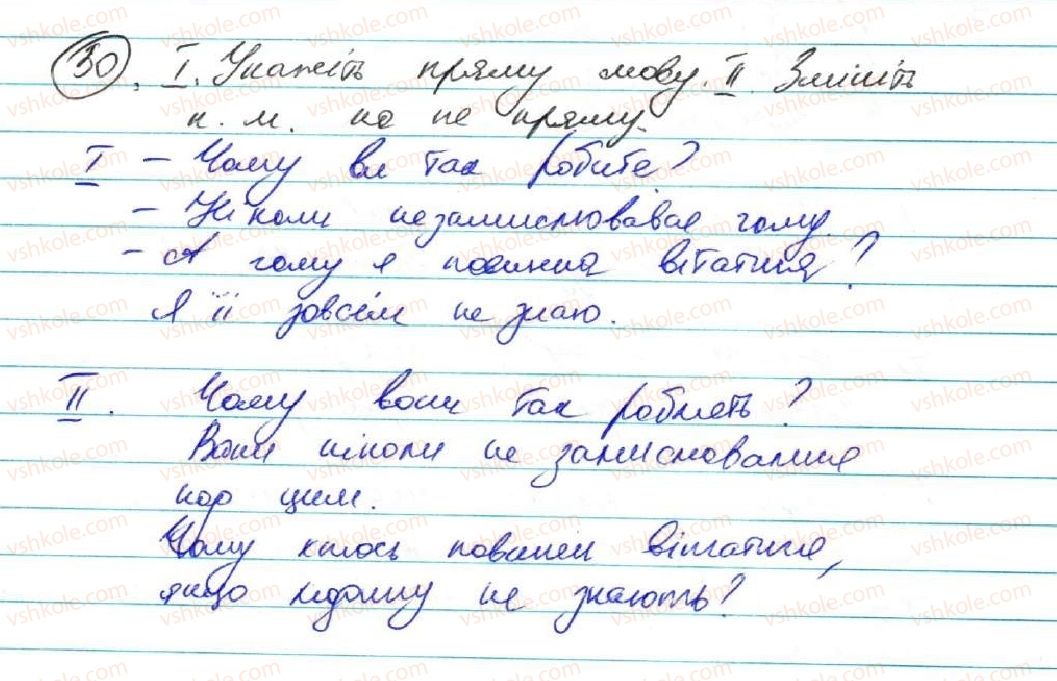 30. I. Укажіть пряму мову. II Змініть
п. м. на не пряму.
I – Чому ви так робите?
– Ніколи незамислювався чому.
– А чому я повинна вітатися?
Я її зовсім не знаю.
II. Чому вони так роблять?
Вони ніколи не замислювалися
над цим.
Чому хтось повинен вітатися,
якщо людину не знають?